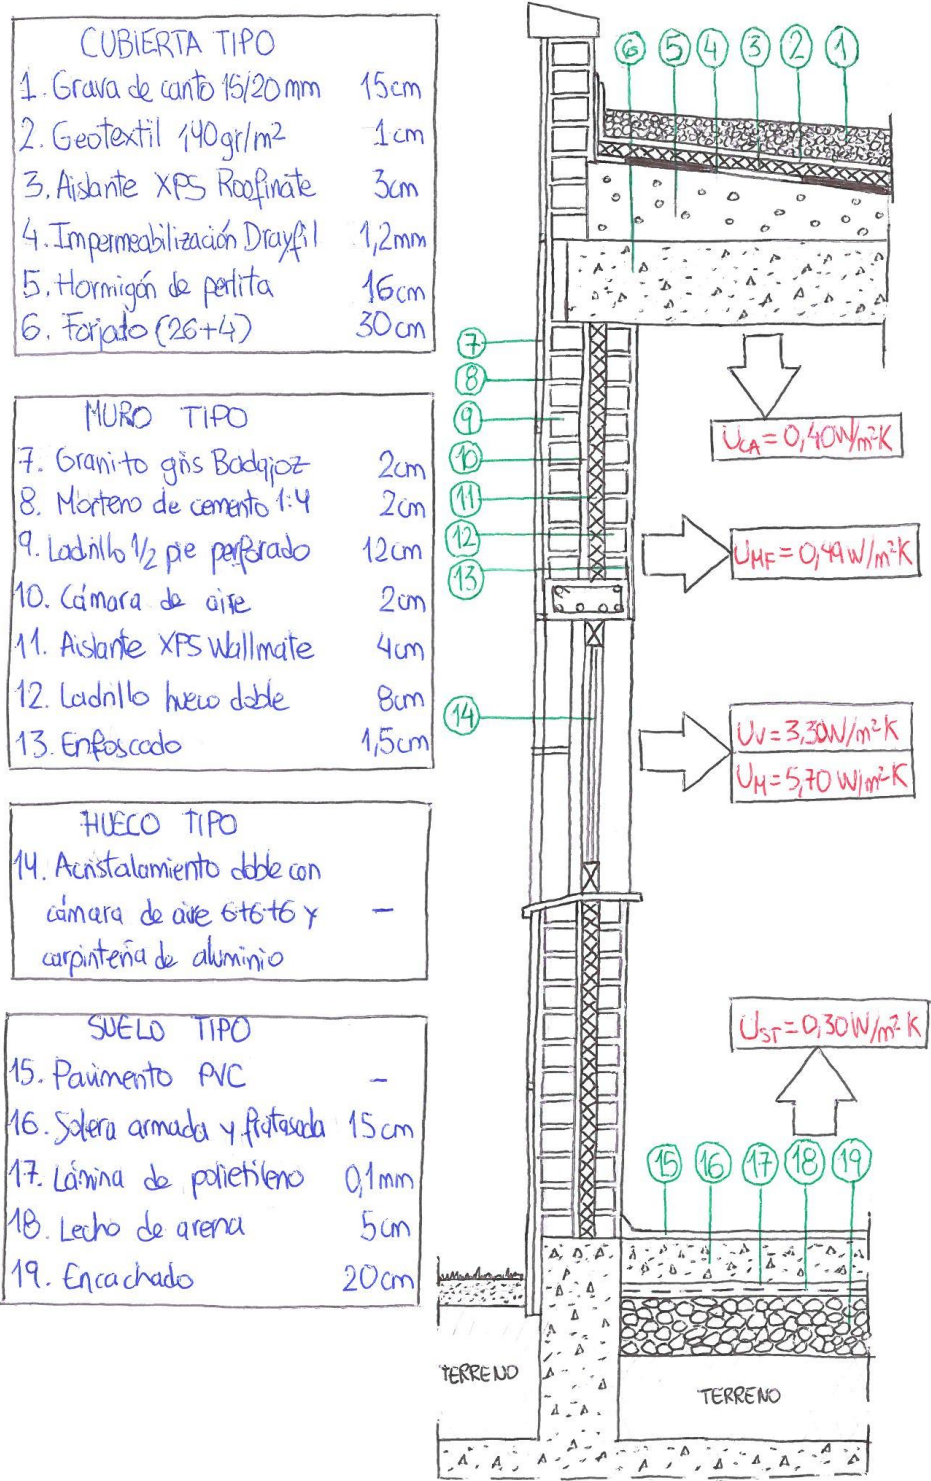 CUBIERTA TIPO
1. Grava de canto 15/20 mm 15cm
2. Geotextil 140gr/m² 1cm
3. Aislante XPS Roofmate 3cm
4. Impermeabilización Drayfil 1,2mm
5. Hormigón de perlita 16cm
6. Forjado (26+4) 30cm
MURO TIPO
7. Granito gris Badajoz 2cm
8. Mortero de cemento 1:4 2cm
9. Ladrillo 1/2 pie perforado 12cm
10. Cámara de aire 2cm
11. Aislante XPS Wallmate 4cm
12. Ladrillo hueco doble 8cm
13. Enfoscado 1,5cm
HUECO TIPO
14. Acristalamiento doble con
cámara de aire 6+6+6 y –
carpintería de aluminio
SUELO TIPO
15. Pavimento PVC –
16. Solera armada y fratasada 15cm
17. Lámina de polietileno 0,1mm
18. Lecho de arena 5cm
19. Encachado 20cm
6 5 4 3 2 1
7
8
9
10
11
12
13
14
U_CA = 0,40W/m²K
U_MF = 0,49 W/m²K
U_V = 3,30W/m²K
U_M = 5,70 W/m²K
U_ST = 0,30 W/m²K
15 16 17 18 19
TERRENO
TERRENO